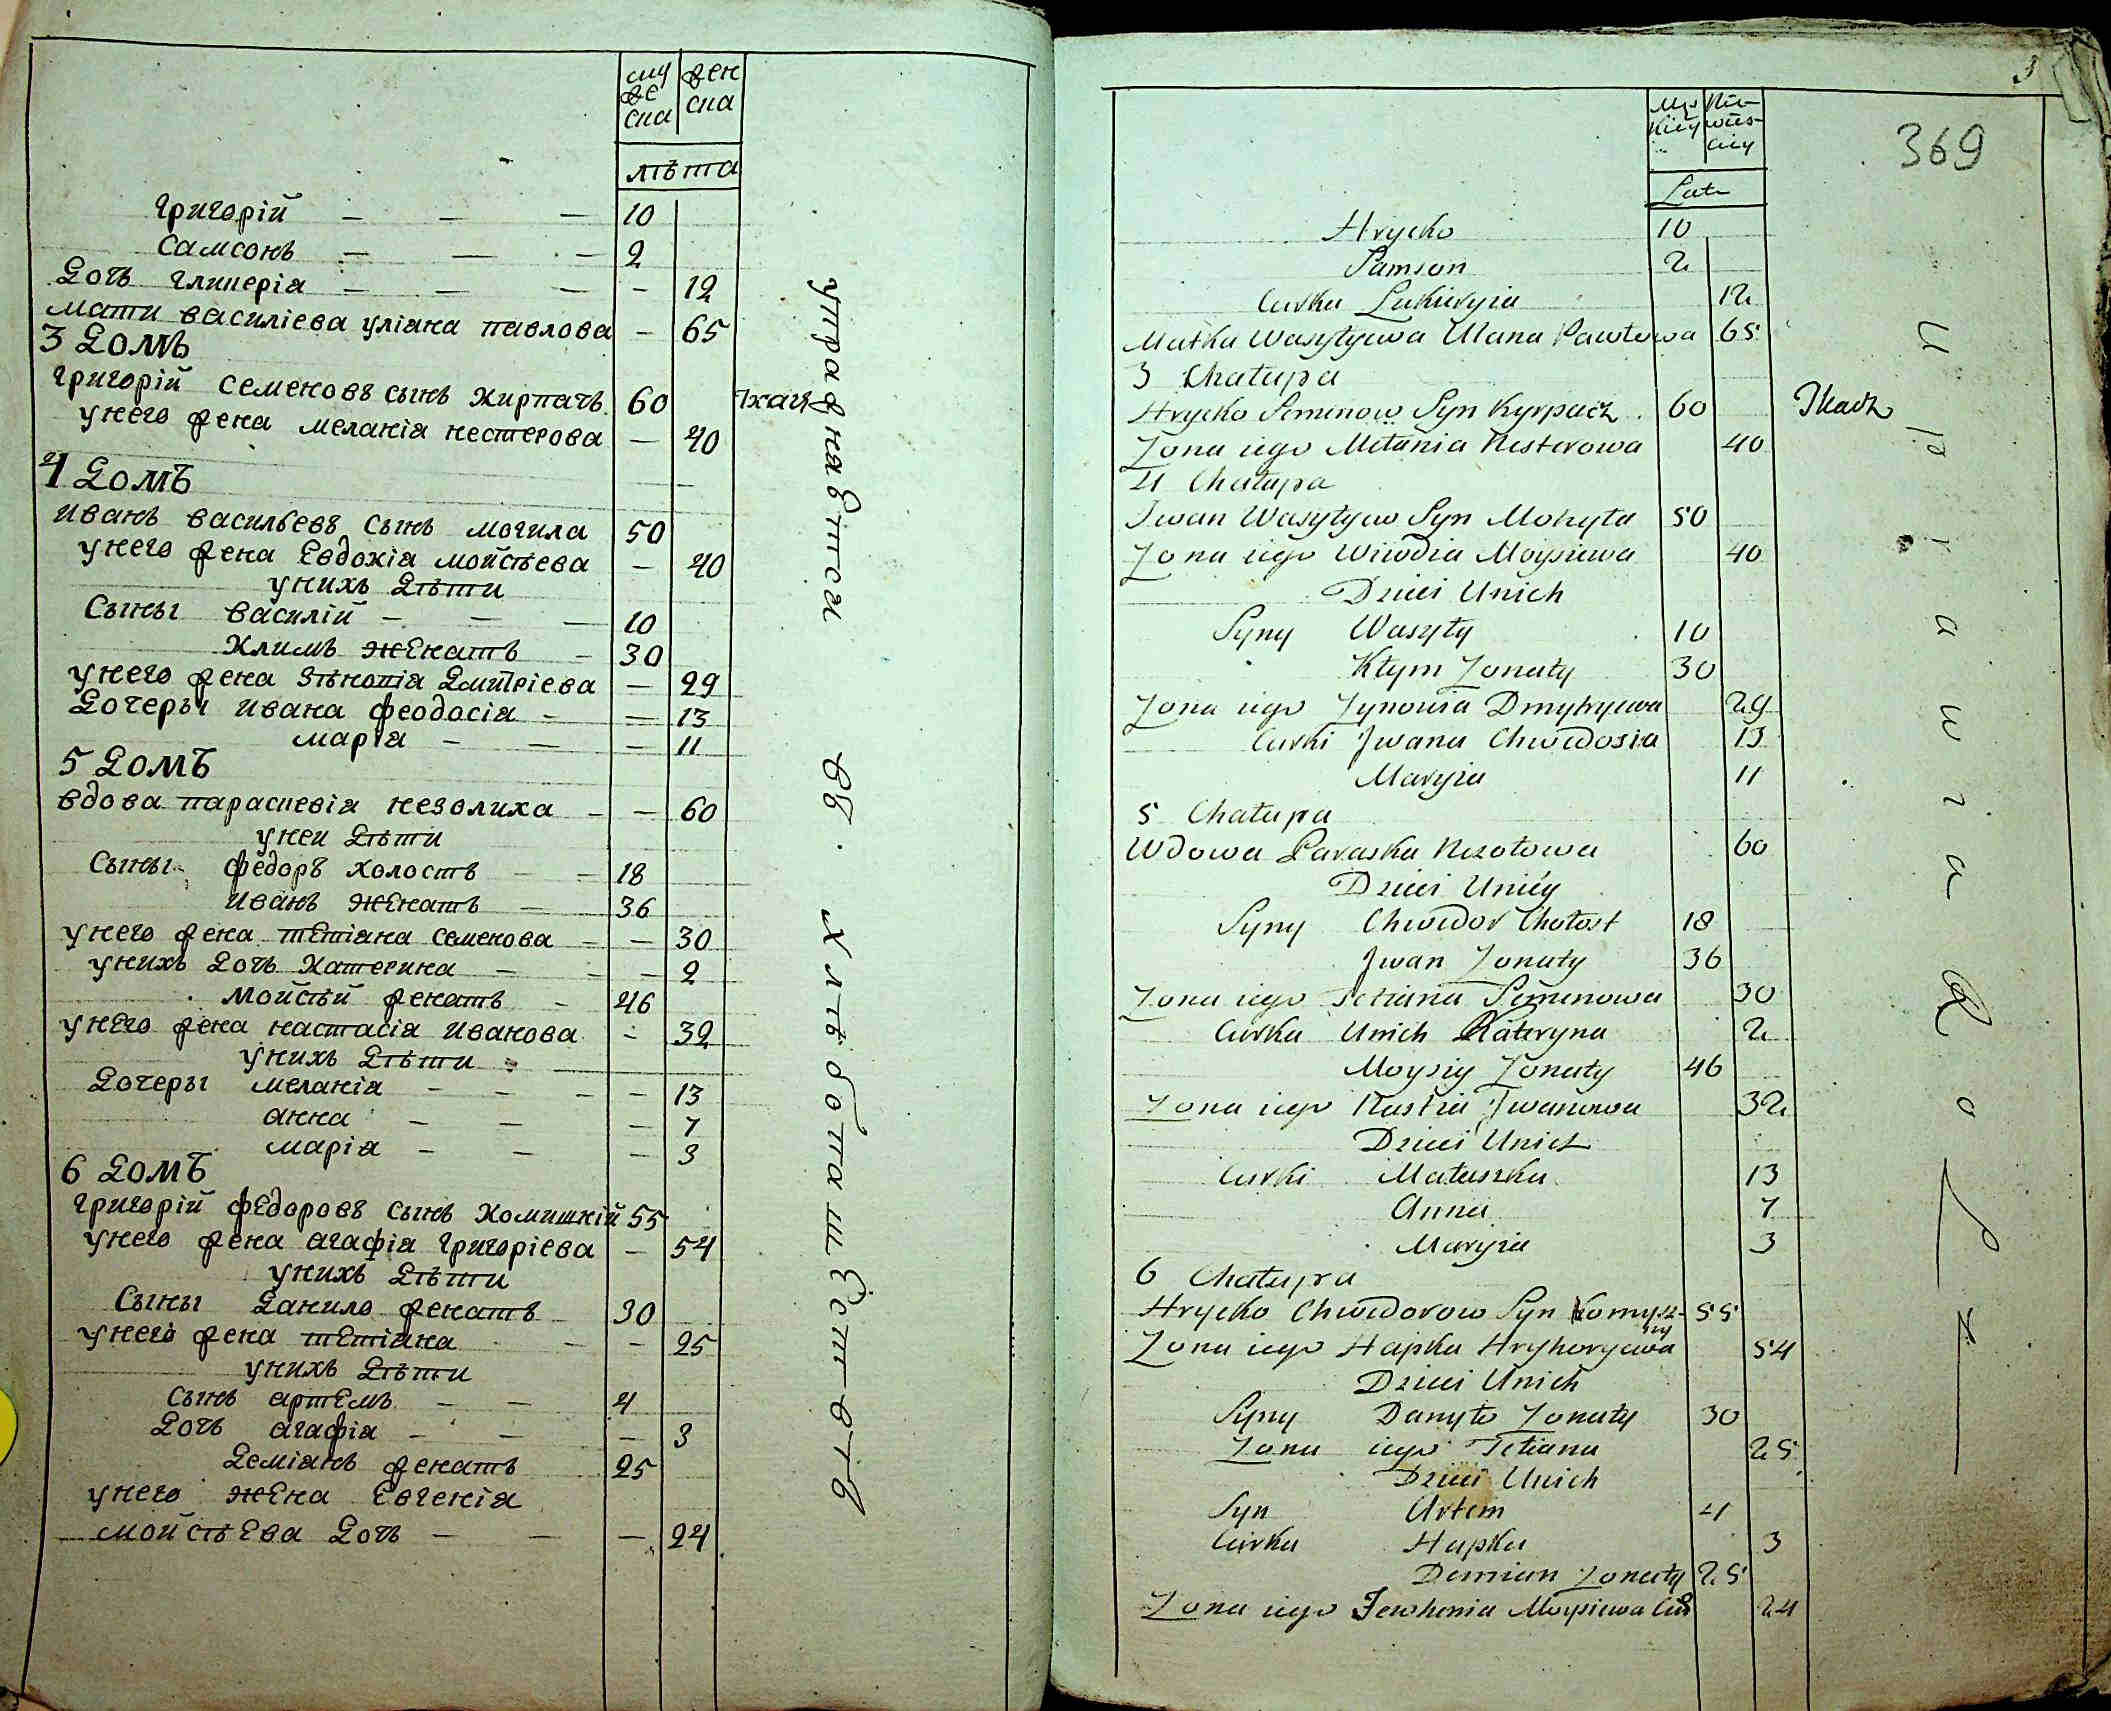 муже ска
жен ска
лѣта
Григорій — — — 10
Самсонъ — — — 2
Дочь Гликерія — — — — 12
мати Василіева Уліана Павлова — 65
3 Домъ
Григорій Семеновъ сынъ Кирпачъ 60 Ткачъ
у него жена Меланія Нестерова — 40
4 Домъ
Иванъ Васильевъ сынъ Могила 50
у него жена Евдокія Мойсѣева — 40
у нихъ дѣти
Сыны Василій — — — 10
Климъ женатъ — 30
у него жена Зѣновія Дмитріева — 29
Дочеры Ивана Феодосія — — 13
Марія — — — 11
5 Домъ
вдова Параскевія Незолиха — — 60
у неи дѣти
Сыны Федоръ холостъ — — 18
Иванъ женатъ — 36
у него жена Тетіана Семенова — — 30
у нихъ дочь Катерина — — — 2
Мойсѣй женатъ — 46
у него жена Настасія Иванова — 32
у нихъ дѣти
Дочеры Меланія — — — — 13
Анна — — — 7
Марія — — — 3
6 Домъ
Григорій Федоровъ сынъ Комишній 55
у него жена Агафія Григоріева — 54
у нихъ дѣти
Сыны Данило женатъ 30
у него жена Тетіана — — 25
у нихъ дѣти
сынъ Артемъ — — 4
Дочь Агафія — — — 3
Деміанъ женатъ 25
у него жена Евгенія
Мойсѣева дочь — — — 24
упражняется въ хлѣбопашествѣ
3
369
Męs kiey
Nie wies ciey
Lata
Hrycko 10
Samson 2
Curka Łukieryia 12
Matka Wasyłyiewa Ulana Pawłowa 65
3 Chałupa
Hrycko Semenow Syn Kyrpacz 60 Tkacz
Zona iego Mełania Nesterowa 40
4 Chałupa
Iwan Wasyłyiew Syn Mohyła 50
Zona iego Wiewdia Moysiewa 40
Dzieci Unich
Syny Wasyły 10
Kłym Zonaty 30
Zona iego Zynowia Dmytryiewa 29
Curki Iwana Chwedosia 13
Maryia 11
5 Chałupa
Wdowa Paraska Nezołowa 60
Dzieci Uniey
Syny Chwedor Chołost 18
Iwan Zonaty 36
Zona iego Tetiana Semenowa 30
Curka Unich Kateryna 2
Moysiy Zonaty 46
Zona iego Nastia Iwanowa 32
Dzieci Unich
Curki Małaszka 13
Anna 7
Maryia 3
6 Chałupa
Hrycko Chwedorow Syn Komysz-
ny 55
Zona iego Hapka Hryhoryiewa 54
Dzieci Unich
Syny Danyło Zonaty 30
Zona iego Tetiana 25
Dzieci Unich
Syn Artem 4
Curka Hapka 3
Demian Zonaty 25
Zona iego Jewhenia Moysiewa Cur 24